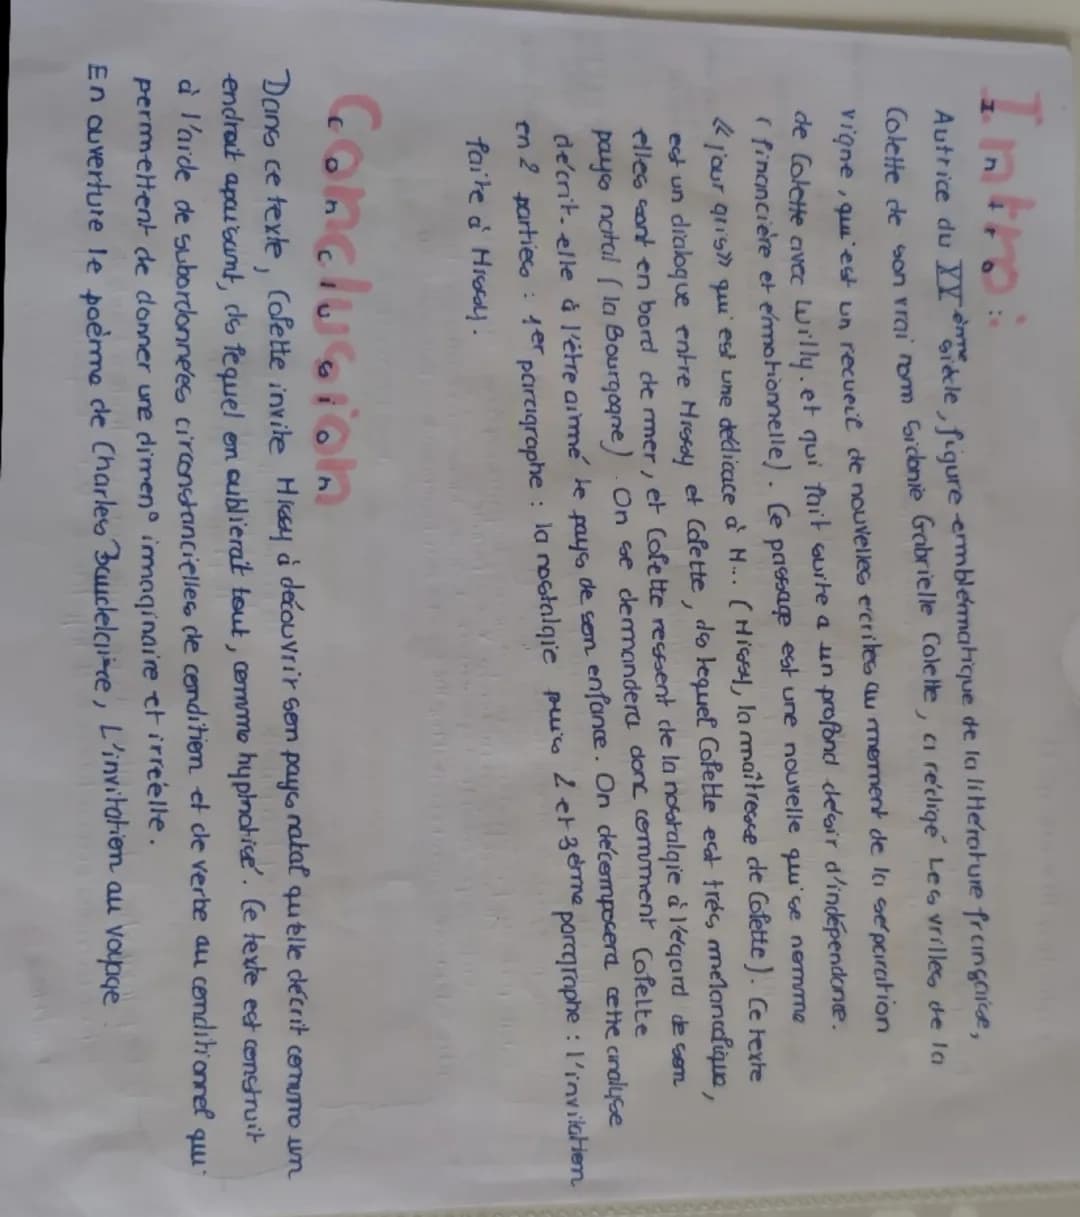 Intro:
Autrice du XXème siècle, figure emblématique de la littérature française,
Colette de son vrai nom Sidonie Gabrielle Colette, a rédigé Les vrilles de la
vigne, qui est un recueil de nouvelles écrites au moment de la séparation
de Colette avec Willy. et qui fait suite a un profond désir d'indépendance.
(financière et émotionnelle). Ce passage est une nouvelle qui se nomme
« jour gris » qui est une dédicace à M... (Missy, la maîtresse de Colette). Ce texte
est un dialogue entre Missy et Colette, ds lequel Colette est très mélancolique,
elles sont en bord de mer, et Colette ressent de la nostalgie à l'égard de son
pays natal (la Bourgogne). On se demandera donc comment Colette
décrit-elle à l'être aimé le pays de son enfance. On décomposera cette analyse
en 2 parties : 1er paragraphe : la nostalgie puis 2 et 3ème paragraphe : l'invitation
faite à Missy.
Conclusion
Conclusion
Dans ce texte, Colette invite Missy à découvrir son pays natal qu'elle décrit comme un
endroit apaisant, ds lequel on oublierait tout, comme hyptnotisé. Ce texte est construit
à l'aide de subordonnées circonstancielles de condition et de verbe au conditionnel qui
permettent de donner une dimen° imaginaire et irréelle.
En ouverture le poème de Charles Baudelaire, L'invitation au voyage